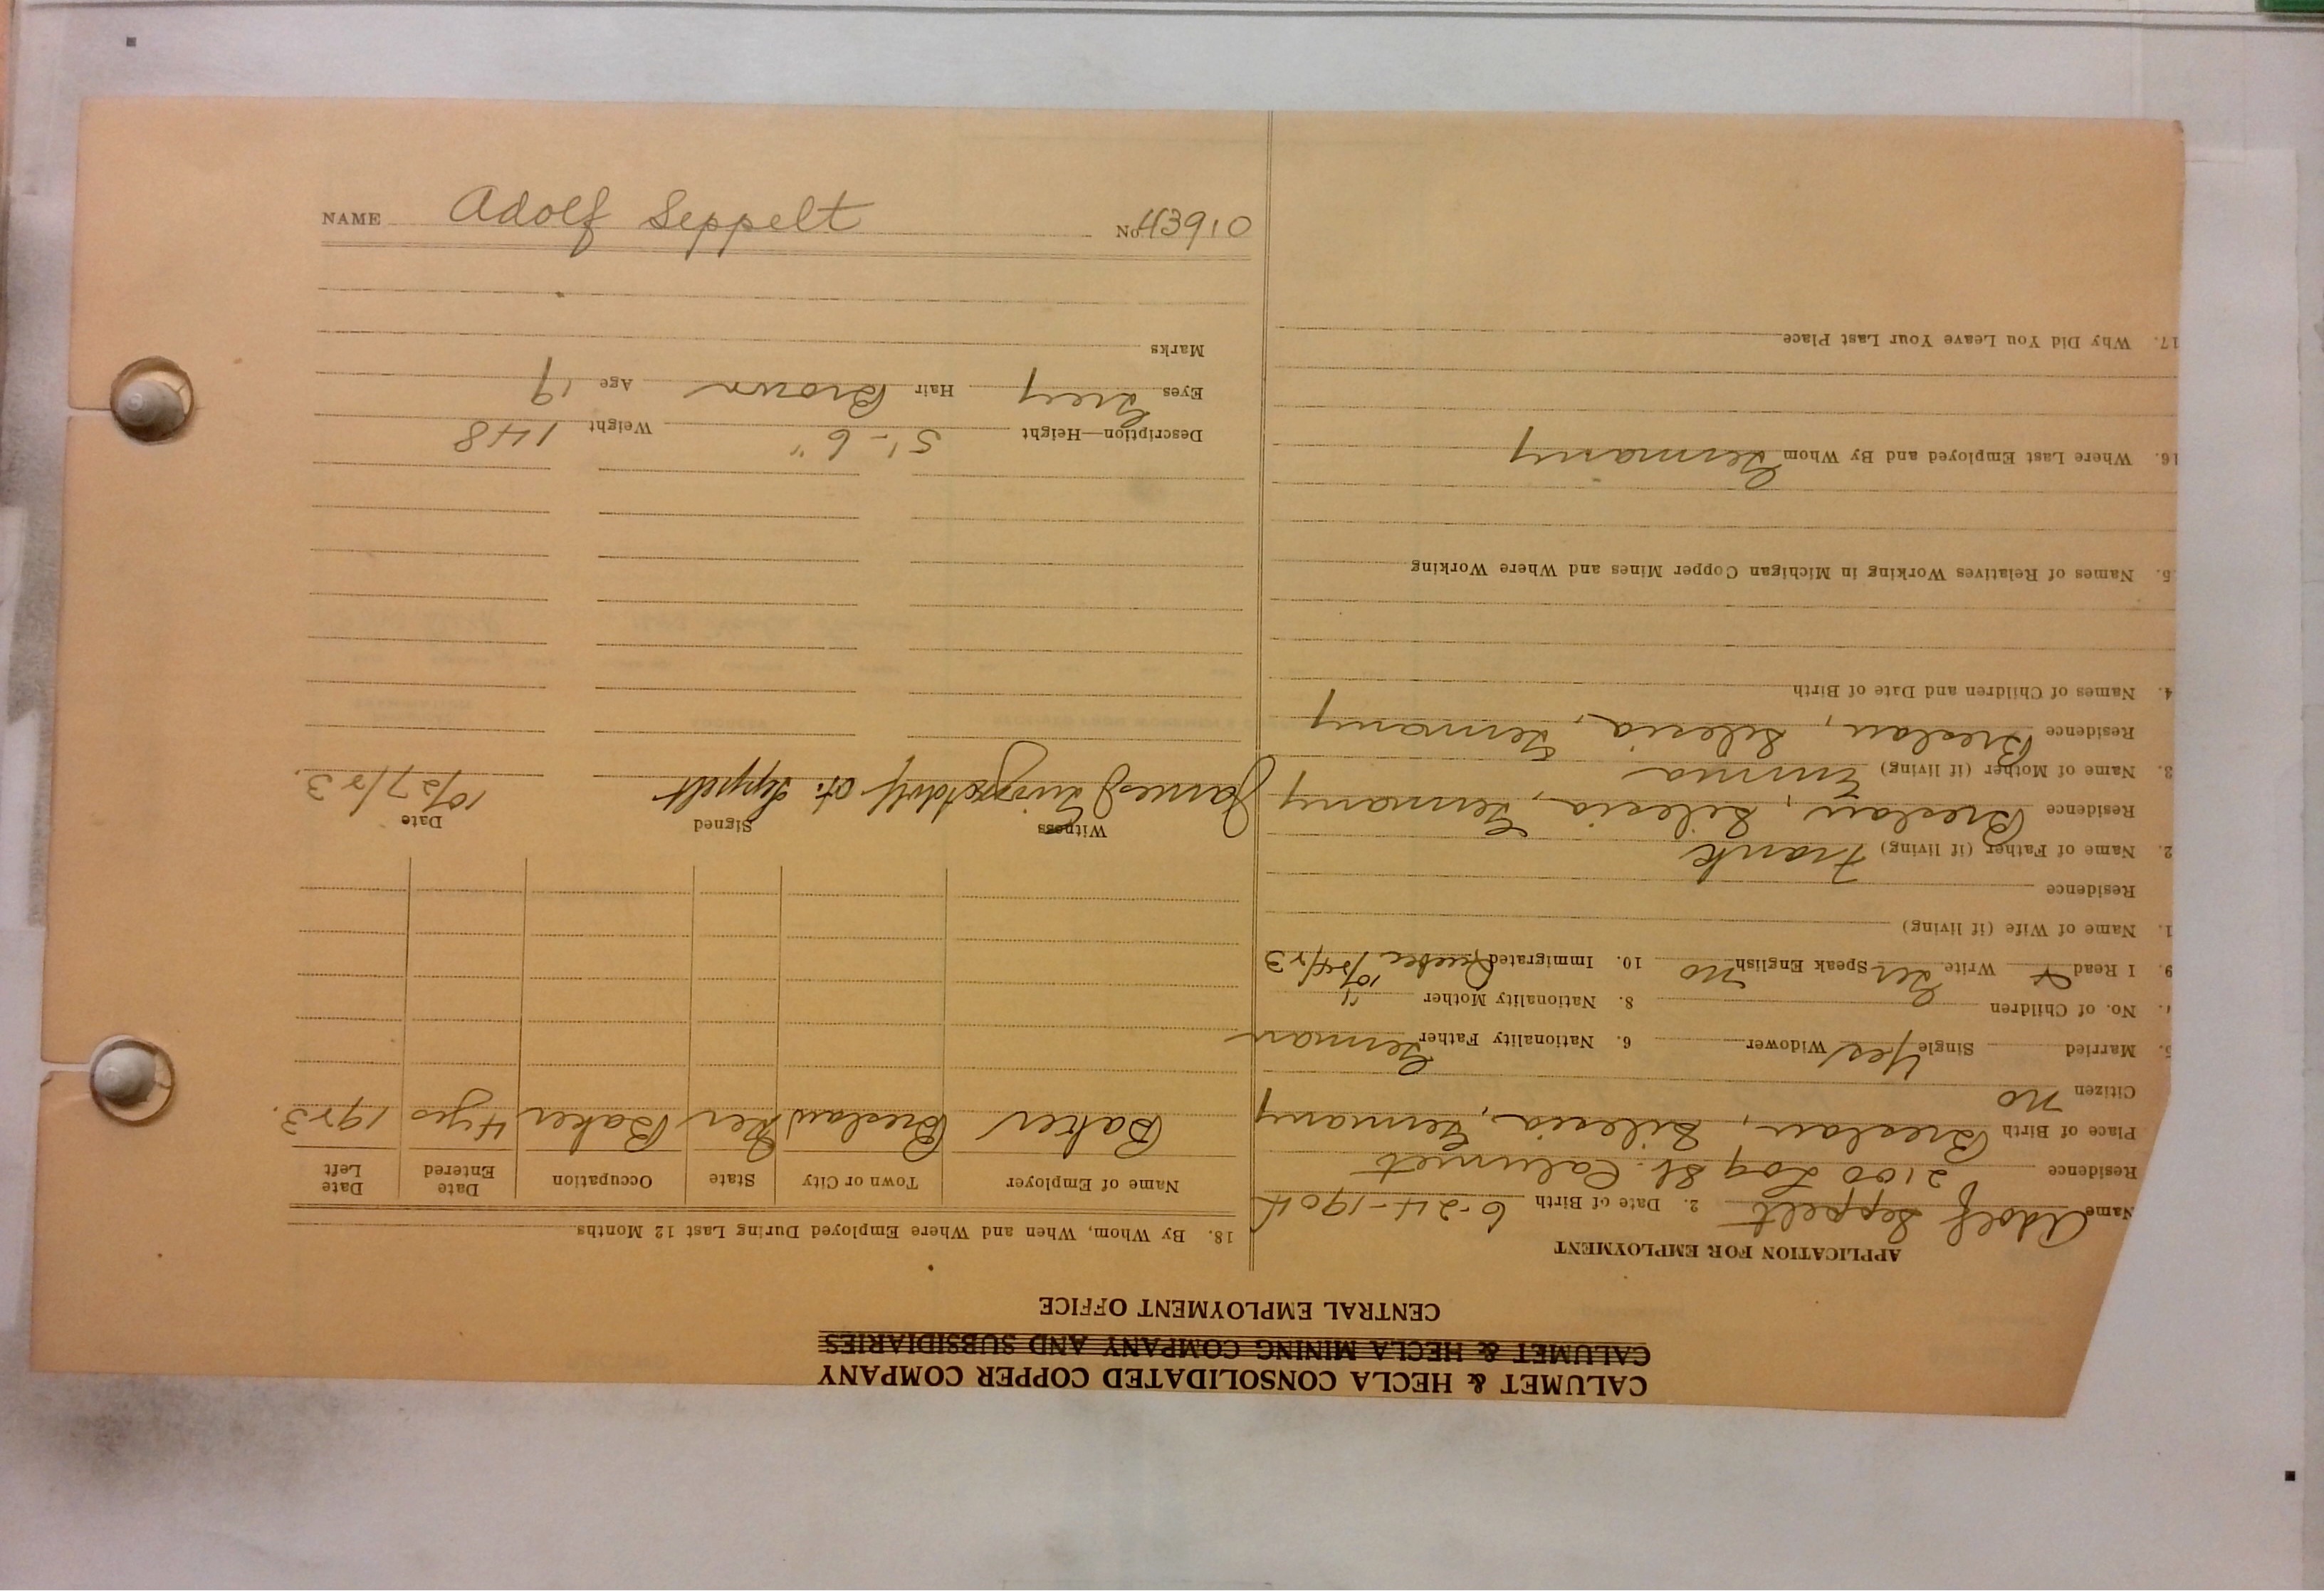 NAME Adolf Seppelt No. 43910
CALUMET & HECLA CONSOLIDATED COPPER COMPANY
CALUMET & HECLA MINING COMPANY AND SUBSIDIARIES
CENTRAL EMPLOYMENT OFFICE
APPLICATION FOR EMPLOYMENT
Name Adolf Seppelt 2. Date of Birth 6-24-1904
Residence 2100 Log St. Calumet
Place of Birth Breslau, Silesia, Germany
Citizen no
5. Married Single Yes Widower 6. Nationality Father German
No. of Children 8. Nationality Mother "
9. I Read Write Ger Speak English no 10. Immigrated Quebec 10/24/23
1. Name of Wife (if living)
Residence
2. Name of Father (if living) Frank
Residence Breslau, Silesia, Germany
3. Name of Mother (if living) Emma
Residence Breslau, Silesia, Germany
4. Names of Children and Date of Birth
5. Names of Relatives Working in Michigan Copper Mines and Where Working
16. Where Last Employed and By Whom Germany
17. Why Did You Leave Your Last Place
18. By Whom, When and Where Employed During Last 12 Months
Name of Employer Town or City State Occupation Date Entered Date Left
Baker Breslau Ger Baker 4 yrs 1923.
Witness Signed Date
James Seppelt 10/27/23.
Description—Height 5'-6" Weight 148
Eyes Grey Hair Brown Age 19
Marks